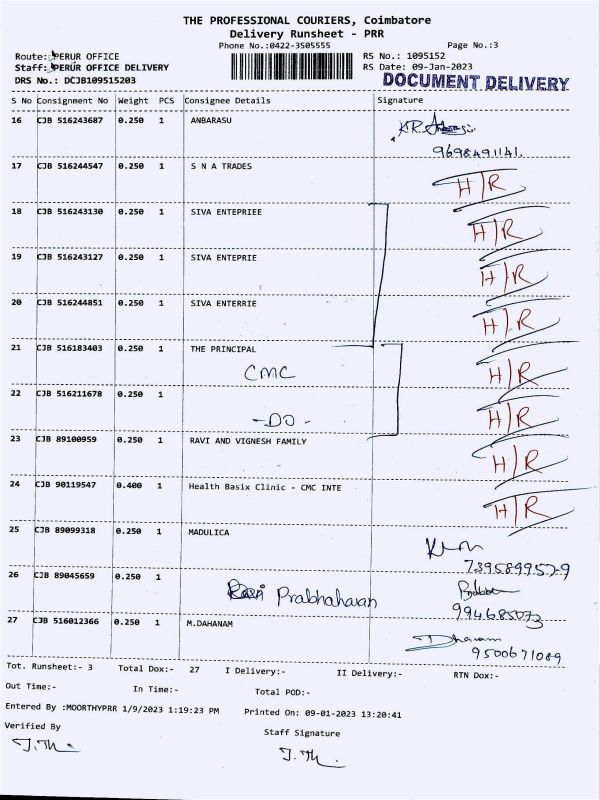 THE PROFESSIONAL COURIERS, Coimbatore
Delivery Runsheet - PRR
Phone No.:0422-3505555 Page No.:3
Route: PERUR OFFICE RS No.: 1095152
Staff: PERUR OFFICE DELIVERY RS Date: 09-Jan-2023
DRS No.: DCJB109515203 DOCUMENT DELIVERY
S No Consignment No Weight PCS Consignee Details Signature
16 CJB 516243687 0.250 1 ANBARASU
9698491141.
17 CJB 516244547 0.250 1 S N A TRADES H/R
18 CJB 516243130 0.250 1 SIVA ENTEPRIEE H/R
19 CJB 516243127 0.250 1 SIVA ENTEPRIE H/R
20 CJB 516244851 0.250 1 SIVA ENTERRIE H/R
21 CJB 516183403 0.250 1 THE PRINCIPAL H/R
CMC
22 CJB 516211678 0.250 1 H/R
- DO -
23 CJB 89100959 0.250 1 RAVI AND VIGNESH FAMILY H/R
24 CJB 90119547 0.400 1 Health Basix Clinic - CMC INTE H/R
25 CJB 89099318 0.250 1 MADULICA
26 CJB 89045659 0.250 1 Prabhaharan
994685073
27 CJB 516012366 0.250 1 M.DAHANAM Dhanam
9500671089
Tot. Runsheet:- 3 Total Dox:- 27 I Delivery:- II Delivery:- RTN Dox:-
Out Time:- In Time:- Total POD:-
Entered By :MOORTHYPRR 1/9/2023 1:19:23 PM Printed On: 09-01-2023 13:20:41
Verified By Staff Signature